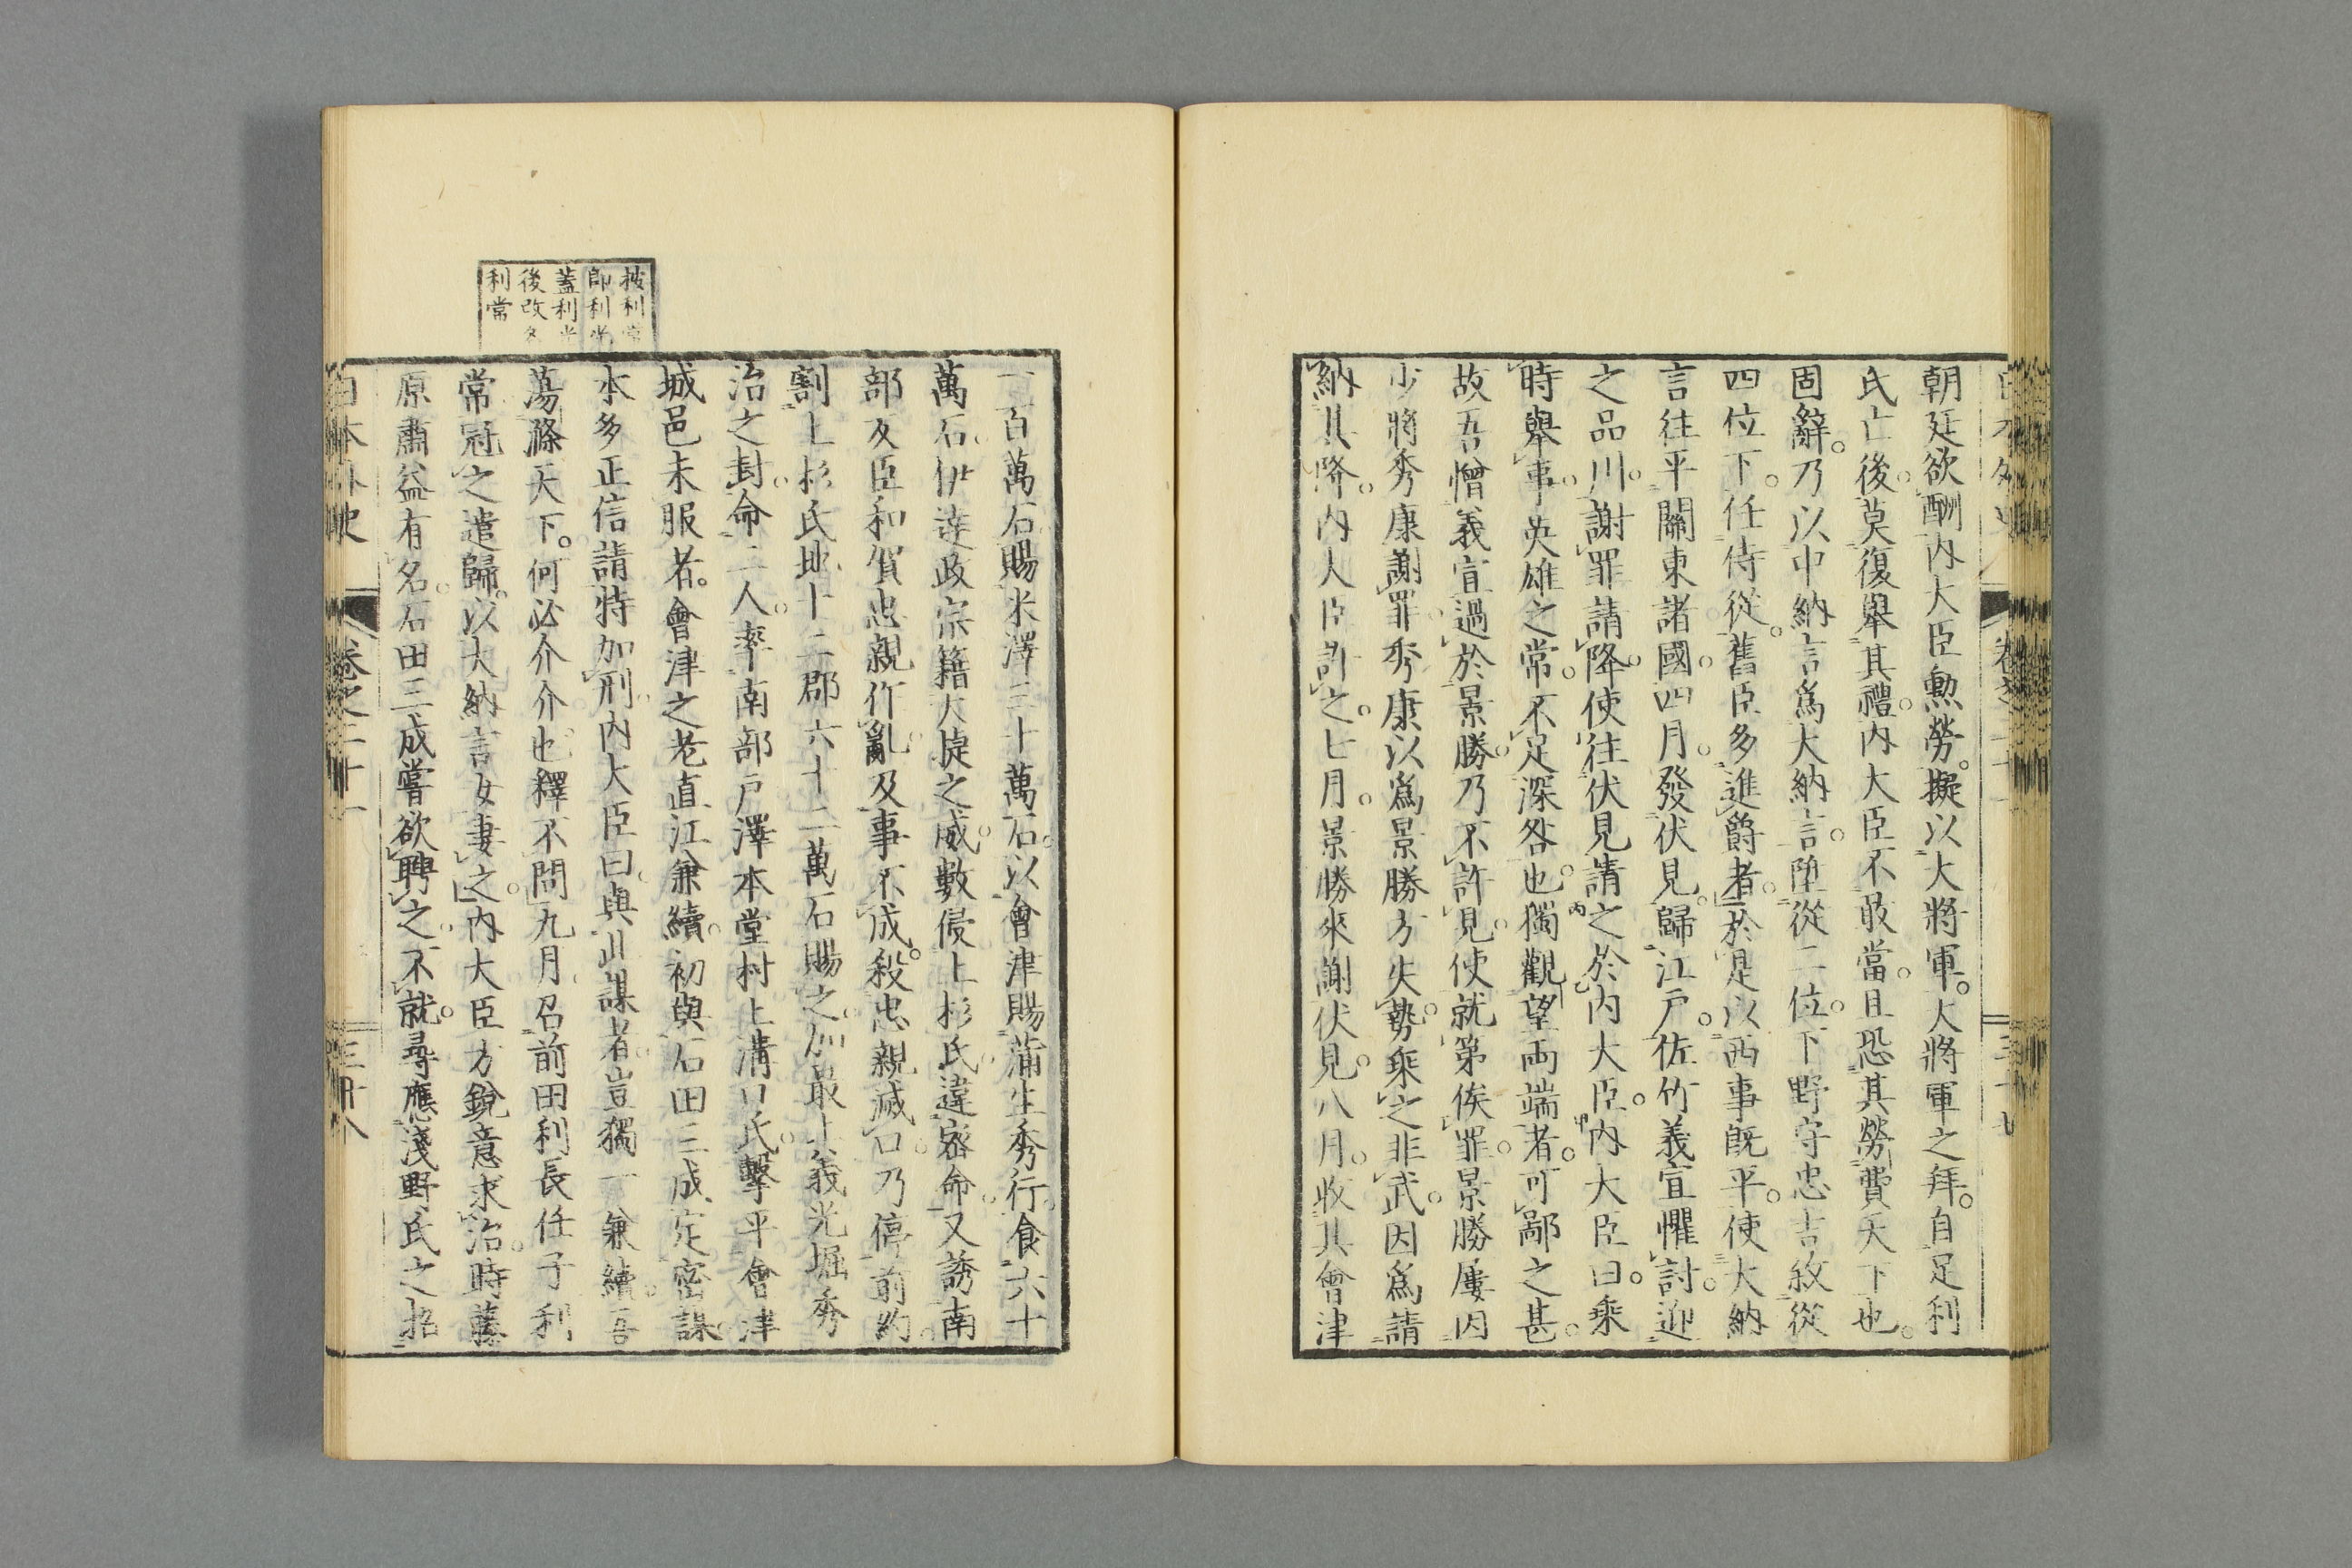 朝廷欲酬内大臣勳勞。擬以大將軍。大將軍之拜。自足利
氏亡後。莫復舉其禮。内大臣不敢當。且恐其勞費天下也。
固辭。乃以中納言爲大納言。陞從二位。下野守忠吉敘從
四位下。任侍從。舊臣多進爵者。於是以西事既平。使大納
言往平關東諸國。四月。發伏見。歸江戸。佐竹義宣懼討。迎
之品川。謝罪請降。使往伏見請之於内大臣。内大臣曰。乘
時舉事。英雄之常。不足深咎也。獨觀望兩端者。可鄙之甚。
故吾憎義宣過於景勝。乃不許見。使就第俟罪。景勝屢因
少將秀康謝罪。秀康以爲景勝方失勢。乘之非武。因爲請
納其降。内大臣許之。七月。景勝來謝伏見。八月。收其會津
一百萬石。賜米澤三十萬石。以會津賜蒲生秀行。食六十
萬石。伊達政宗籍大捷之威。數侵上杉氏。違密命。又誘南
部及臣和賀忠親作亂。及事不成。殺忠親滅口。乃停前約。
割上杉氏地十二郡六十二萬石賜之。加最上義光堀秀
治之封。命二人。率南部戸澤本堂村上溝口氏。擊平會津
城邑未服者。會津之老直江兼續。初與石田三成定密謀。
本多正信請特加刑。内大臣曰。與此謀者。豈獨一兼續。吾
蕩滌天下。何必介介也。釋不問。九月。召前田利長任子利
常冠之。遣歸。以大納言女妻之。内大臣方鋭意求治。時藤
原肅益有名。石田三成嘗欲聘之。不就。尋應淺野氏之招
日本外史
卷之二十一
三十八
按利常
即利光
蓋利光
後改名
利常